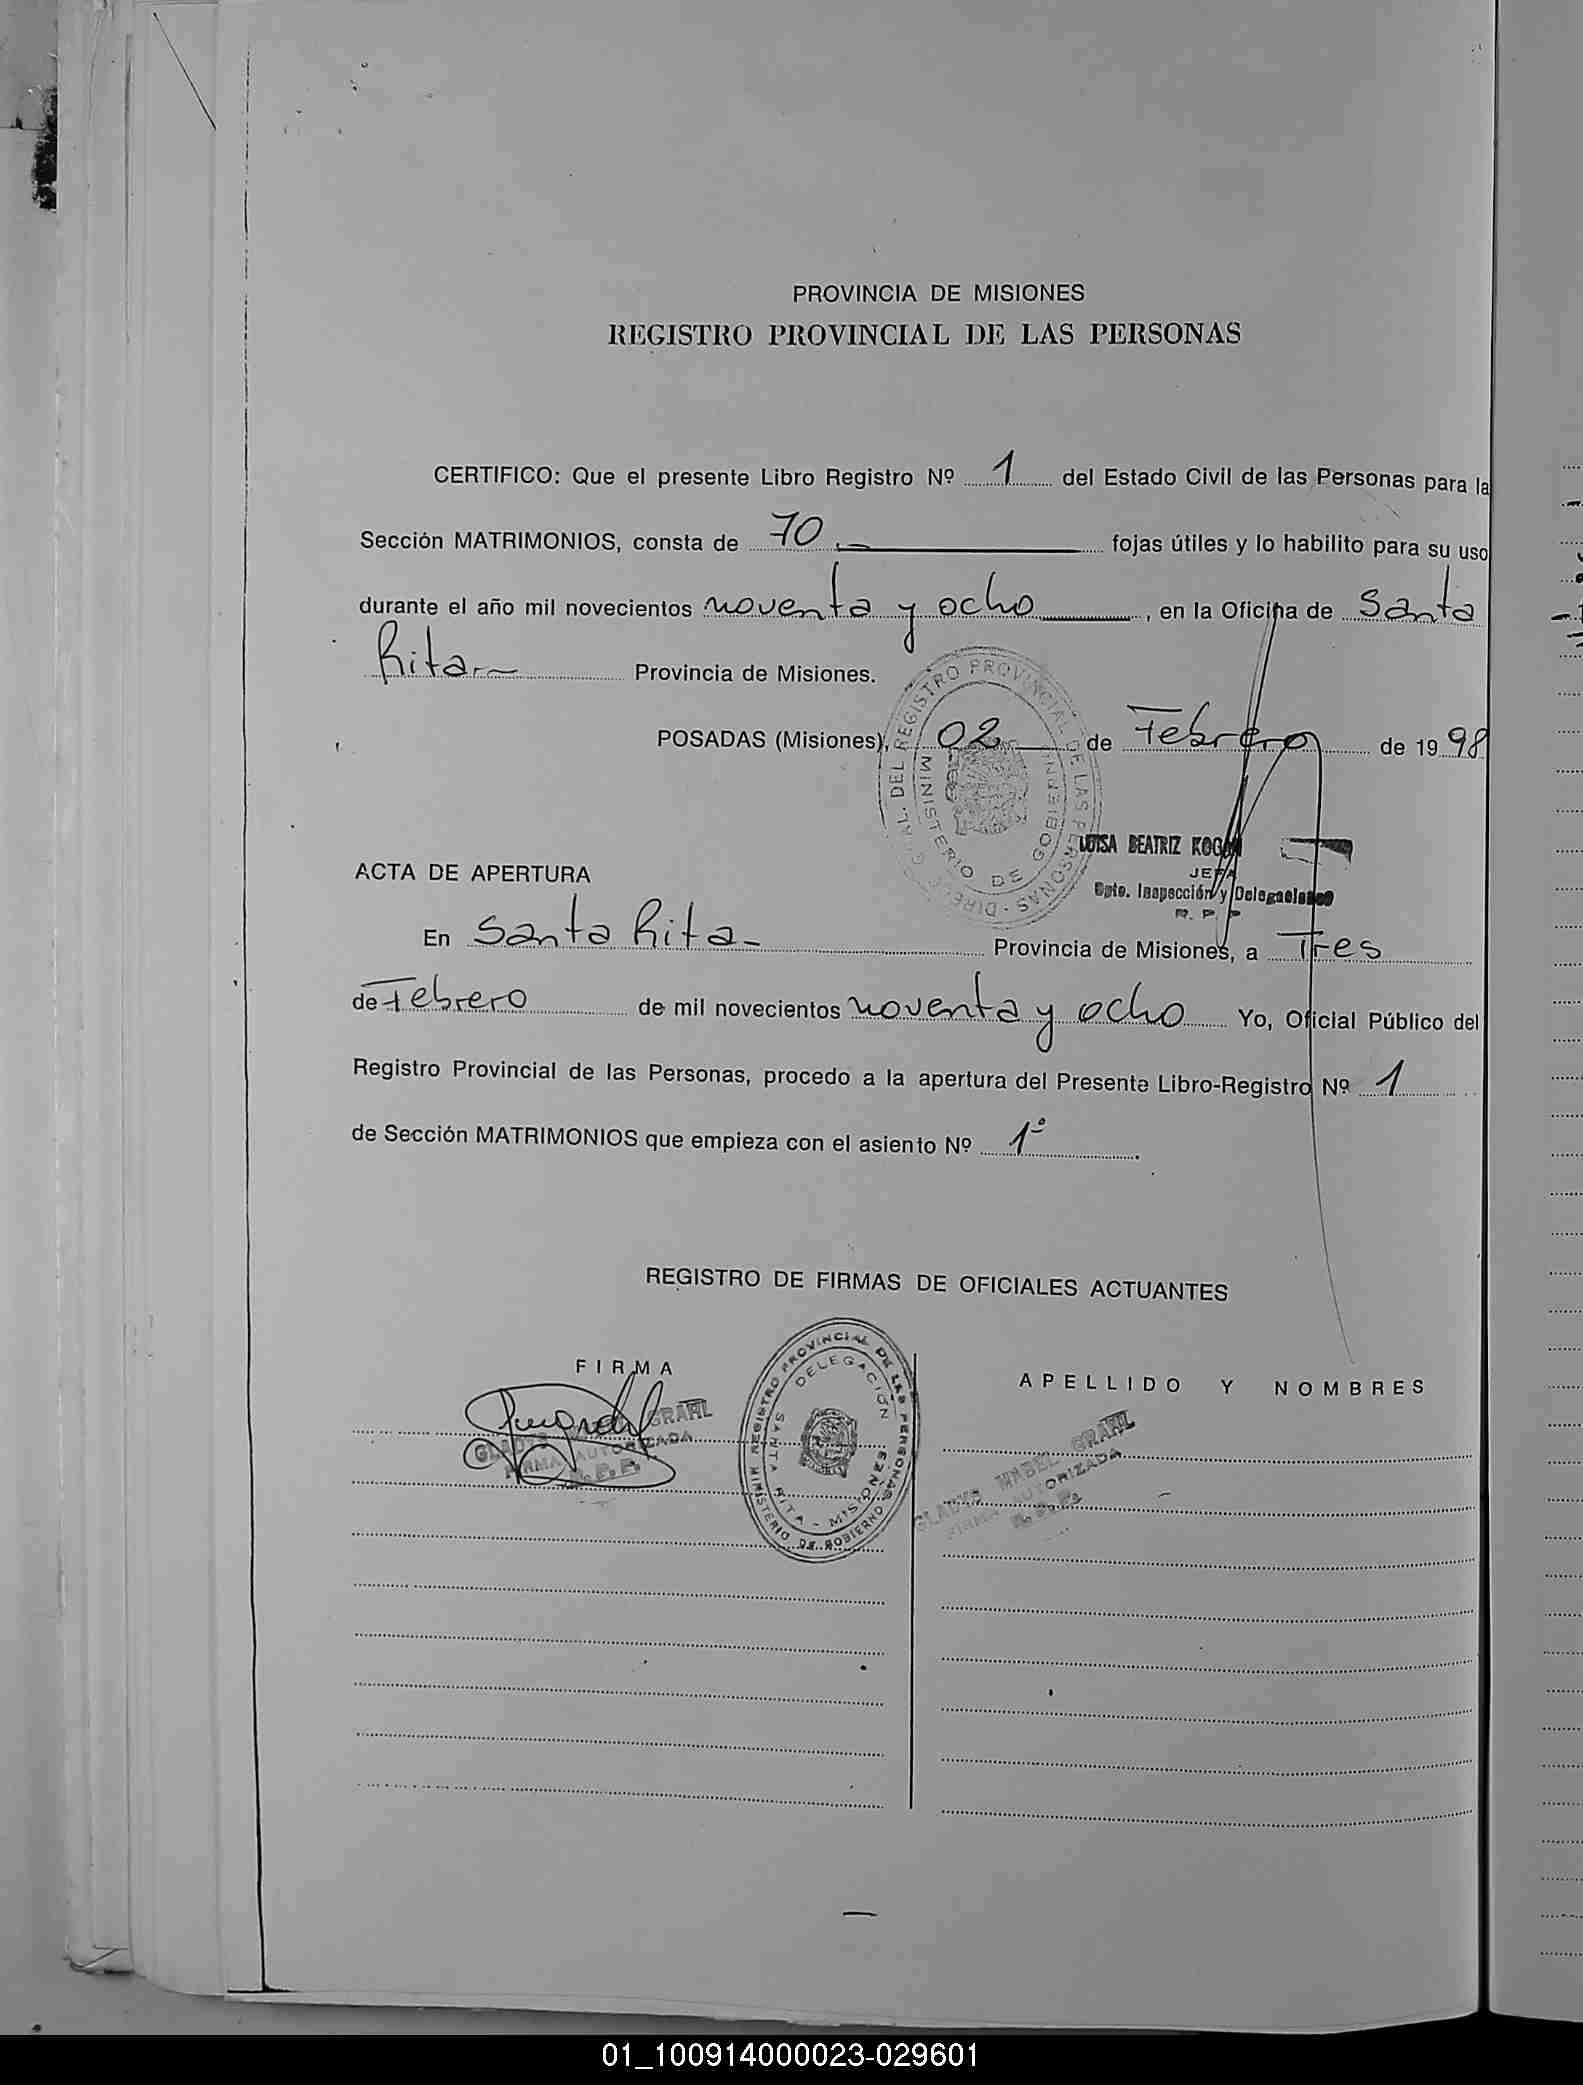 PROVINCIA DE MISIONES
REGISTRO PROVINCIAL DE LAS PERSONAS
CERTIFICO: Que el presente Libro Registro Nº 1 del Estado Civil de las Personas para la
Sección MATRIMONIOS, consta de 70.- fojas útiles y lo habilito para su uso
durante el año mil novecientos noventa y ocho, en la Oficina de Santa
Rita.- Provincia de Misiones.
POSADAS (Misiones), 02 de Febrero de 1998
DIREC. GRAL. DEL REGISTRO PROVINCIAL DE LAS PERSONAS
MINISTERIO DE GOBIERNO
LUISA BEATRIZ KOGAN
JEFA
Dpto. Inspección y Delegaciones
R. P. P
ACTA DE APERTURA
En Santa Rita- Provincia de Misiones, a Tres
de Febrero de mil novecientos noventa y ocho Yo, Oficial Público del
Registro Provincial de las Personas, procedo a la apertura del Presente Libro-Registro Nº 1
de Sección MATRIMONIOS que empieza con el asiento Nº 1º.
REGISTRO DE FIRMAS DE OFICIALES ACTUANTES
FIRMA
APELLIDO Y NOMBRES
GLADYS GRAHL
FIRMA AUTORIZADA
R. P. P.
REGISTRO PROVINCIAL DE LAS PERSONAS
MINISTERIO DE GOBIERNO
DELEGACIÓN
SANTA RITA - MISIONES
GLADYS MABEL GRAHL
FIRMA AUTORIZADA
R. P. P.
01_100914000023-029601